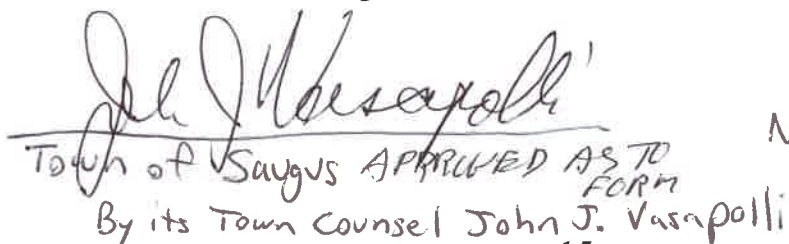 John J Vasapolli
Town of Saugus APPROVED AS TO
FORM
By its Town Counsel John J. Vasapolli